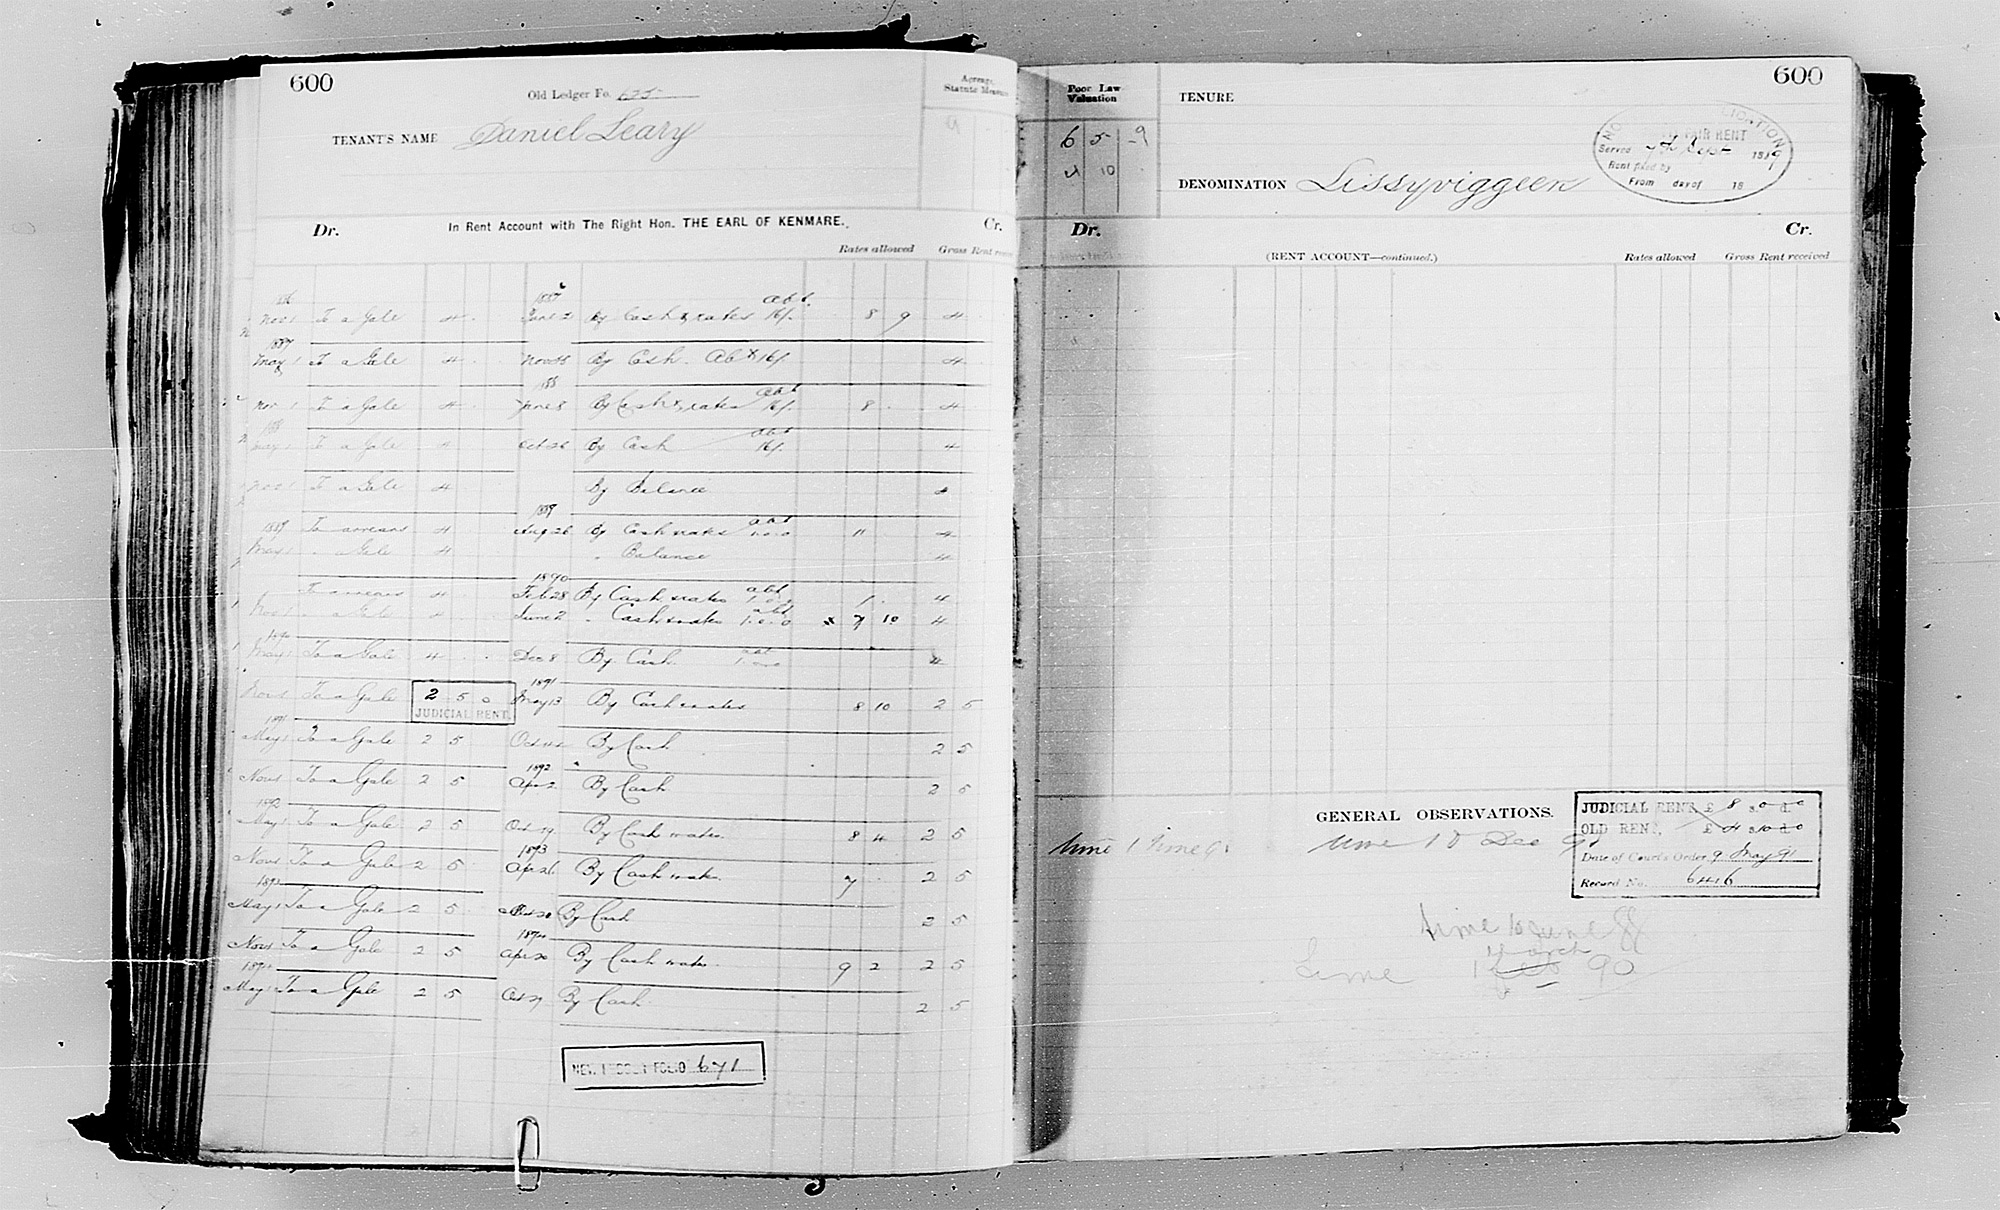 600
Old Ledger Fo. 625
Acreage,
Statute Measure
TENANT'S NAME Daniel Leary
Dr. In Rent Account with The Right Hon. THE EARL OF KENMARE. Cr.
Rates allowed Gross Rent
Nov 1 To a Gale 4 June 2 By Cash & rates abt 16/. 8 9 4
1887
May 1 To a Gale 4 By Cash. Abt 16/. 4
188
Nov 1 To a Gale 4 June 8 By Cash & rates abt 16/. 8 4
To a Gale 4 Oct 26 By Cash abt 16/. 4
Nov 1 To a Gale 4 By Balance 4
1889 1889
To arrears 4 Aug 26 By Cash & rates abt 1.0.0 11 4
May 1 " Gale 4 " Balance 4
1890
To arrears 4 Feb 28 By Cash & rates abt 1. 4
Nov 1 " a Gale 4 June 2 " Cash & rates abt 1.0.0 x 7 10 4
1890
May 1 To a Gale 4 Dec 8 By Cash abt 1.0.0 4
1891
Nov 1 To a Gale 2 5 0 May 13 By Cash & rates 8 10 2 5
JUDICIAL RENT.
1891
May 1 To a Gale 2 5 Oct By Cash 2 5
1892
Nov 1 To a Gale 2 5 Apr 2 By Cash 2 5
1892
May 1 To a Gale 2 5 Oct 19 By Cash & rates. 8 4 2 5
1893
Nov 1 To a Gale 2 5 Apr 26 By Cash & rates. 7 2 5
May 1 To a Gale 2 5 Oct 20 By Cash 2 5
1894
Nov 1 To a Gale 2 5 Apr 20 By Cash & rates. 9 2 2 5
1894
May 1 To a Gale 2 5 Oct 29 By Cash 2 5
NEW LEDGER FOLIO 671
600
Poor Law
Valuation
6 5 9
10
TENURE
FAIR RENT
Served 7th Sept
Rent fixed by
From day of 18
DENOMINATION Lissyviggeen
Dr. Cr.
(RENT ACCOUNT—continued.) Rates allowed Gross Rent received
GENERAL OBSERVATIONS.
JUDICIAL RENT, £ 8 s. 0 d. 0
OLD RENT, £ 4 s. 10 d. 0
Date of Courts Order 9 May 91
Record No. 6416
Lime 1 June 91 Lime 10 Dec 90
Lime 10 June 88
March
Lime 1 Feb 90